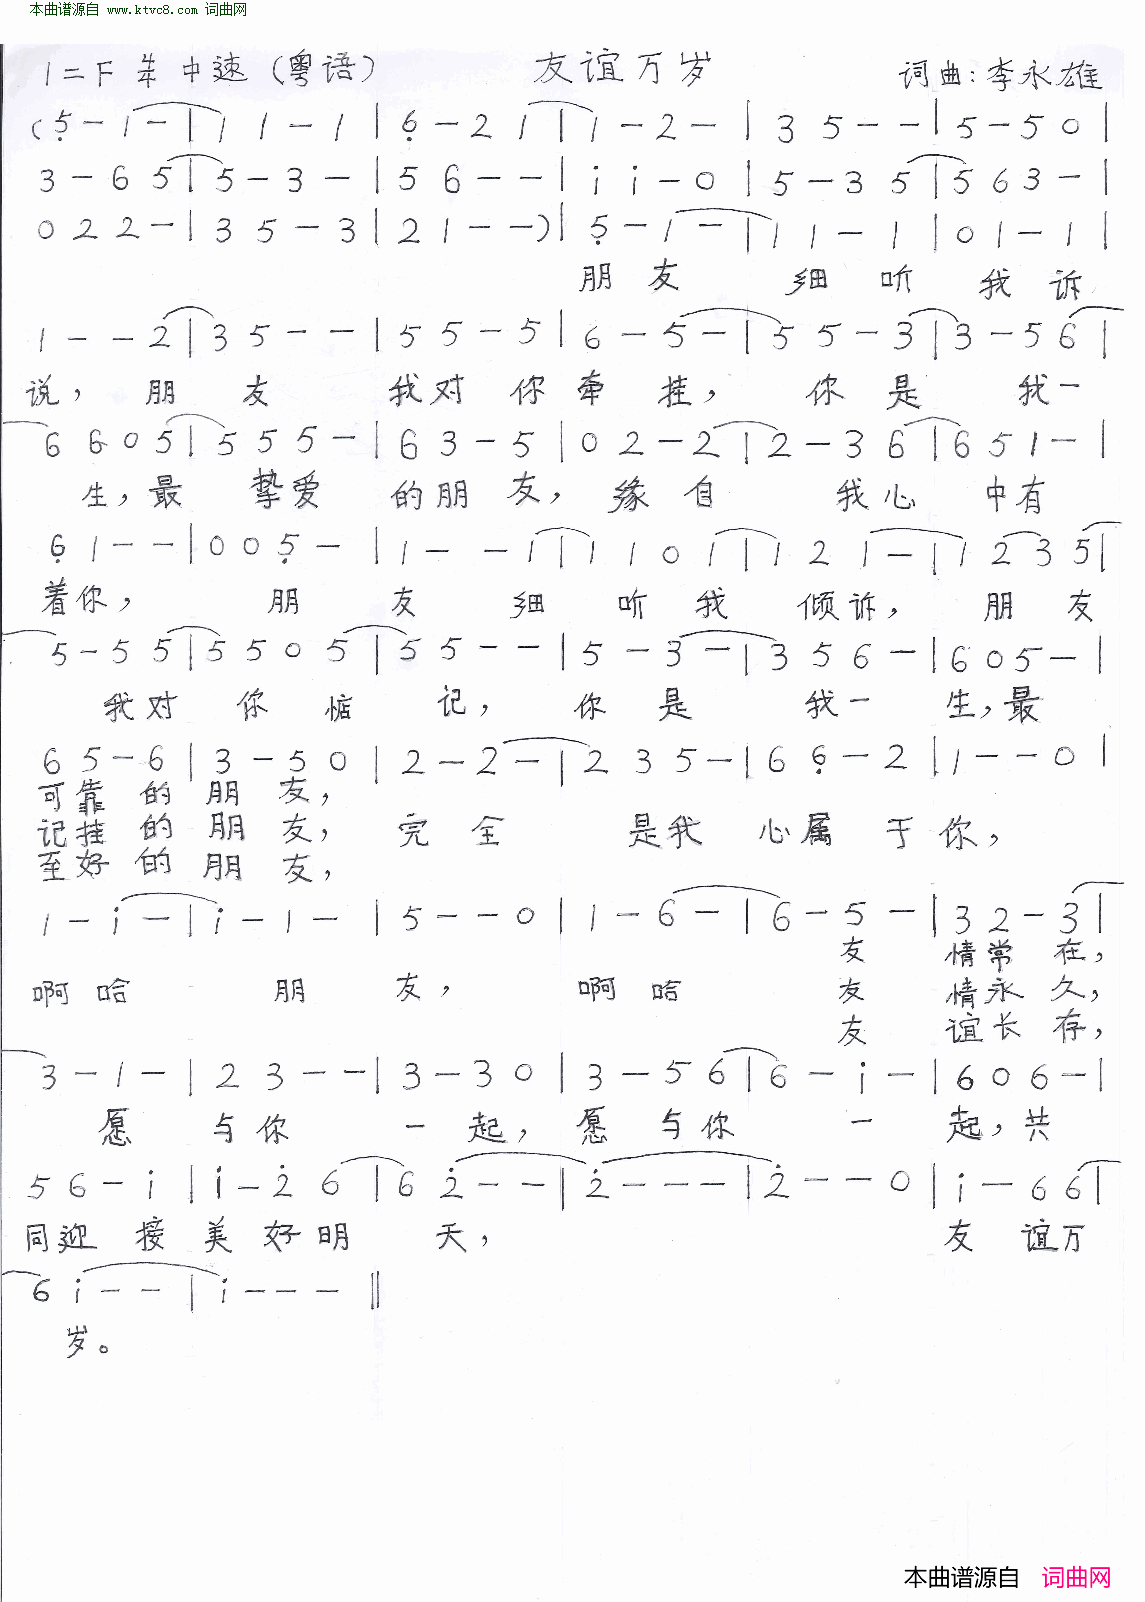 本曲谱源自 www.ktvc8.com 词曲网
1=F 4/4 中速(粤语) 友谊万岁 词曲:李永雄
(5̣ - 1 - | 1 1 - 1 | 6̣ - 2 1 | 1 - 2 - | 3 5 - - | 5 - 5 0 |
3 - 6 5 | 5 - 3 - | 5 6 - - | i i - 0 | 5 - 3 5 | 5 6 3 - |
0 2 2 - | 3 5 - 3 | 2 1 - -) | 5̣ - 1 - | 1 1 - 1 | 0 1 - 1 |
朋 友 细 听 我 诉
1 - - 2 | 3 5 - - | 5 5 - 5 | 6 - 5 - | 5 5 - 3 | 3 - 5 6 |
说, 朋 友 我对 你 牵 挂, 你 是 我一
6 6 0 5 | 5 5 5 - | 6 3 - 5 | 0 2 - 2 | 2 - 3 6 | 6 5 1 - |
生,最 挚爱 的朋 友, 缘 自 我心 中有
6̣ 1 - - | 0 0 5̣ - | 1 - - 1 | 1 1 0 1 | 1 2 1 - | 1 2 3 5 |
着你, 朋 友 细 听我 倾诉, 朋 友
5 - 5 5 | 5 5 0 5 | 5 5 - - | 5 - 3 - | 3 5 6 - | 6 0 5 - |
我对 你 惦 记, 你 是 我一 生,最
6 5 - 6 | 3 - 5 0 | 2 - 2 - | 2 3 5 - | 6 6̣ - 2 | 1 - - 0 |
可靠 的 朋 友,
记挂 的 朋 友, 完 全 是我 心属 于你,
至好 的 朋 友,
1 - i - | i - 1 - | 5 - - 0 | 1 - 6 - | 6 - 5 - | 3 2 - 3 |
友 情常 在,
啊哈 朋 友, 啊哈 友 情永 久,
友 谊长 存,
3 - 1 - | 2 3 - - | 3 - 3 0 | 3 - 5 6 | 6 - i - | 6 0 6 - |
愿 与你 一 起, 愿 与你 一 起,共
5 6 - i | i - 2̇ 6 | 6 2̇ - - || 2̇ - - - | 2̇ - - 0 | i - 6 6 |
同迎 接 美 好明 天, 友 谊万
6 i - - | i - - - ||
岁。
本曲谱源自 词曲网